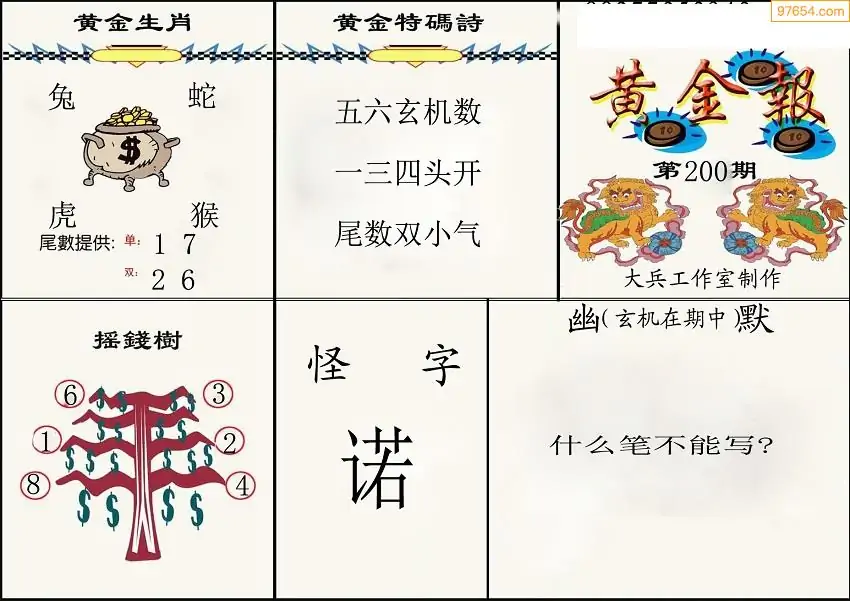 97654.com
黄金生肖
兔 蛇
$
虎 猴
尾數提供: 单: 1 7
双: 2 6
黄金特碼詩
五六玄机数
一三四头开
尾数双小气
黄金報
10
10
10
第200期
大兵工作室制作
摇錢樹
6 3
1 2
8 4
怪 字
诺
幽(玄机在期中)默
什么笔不能写?